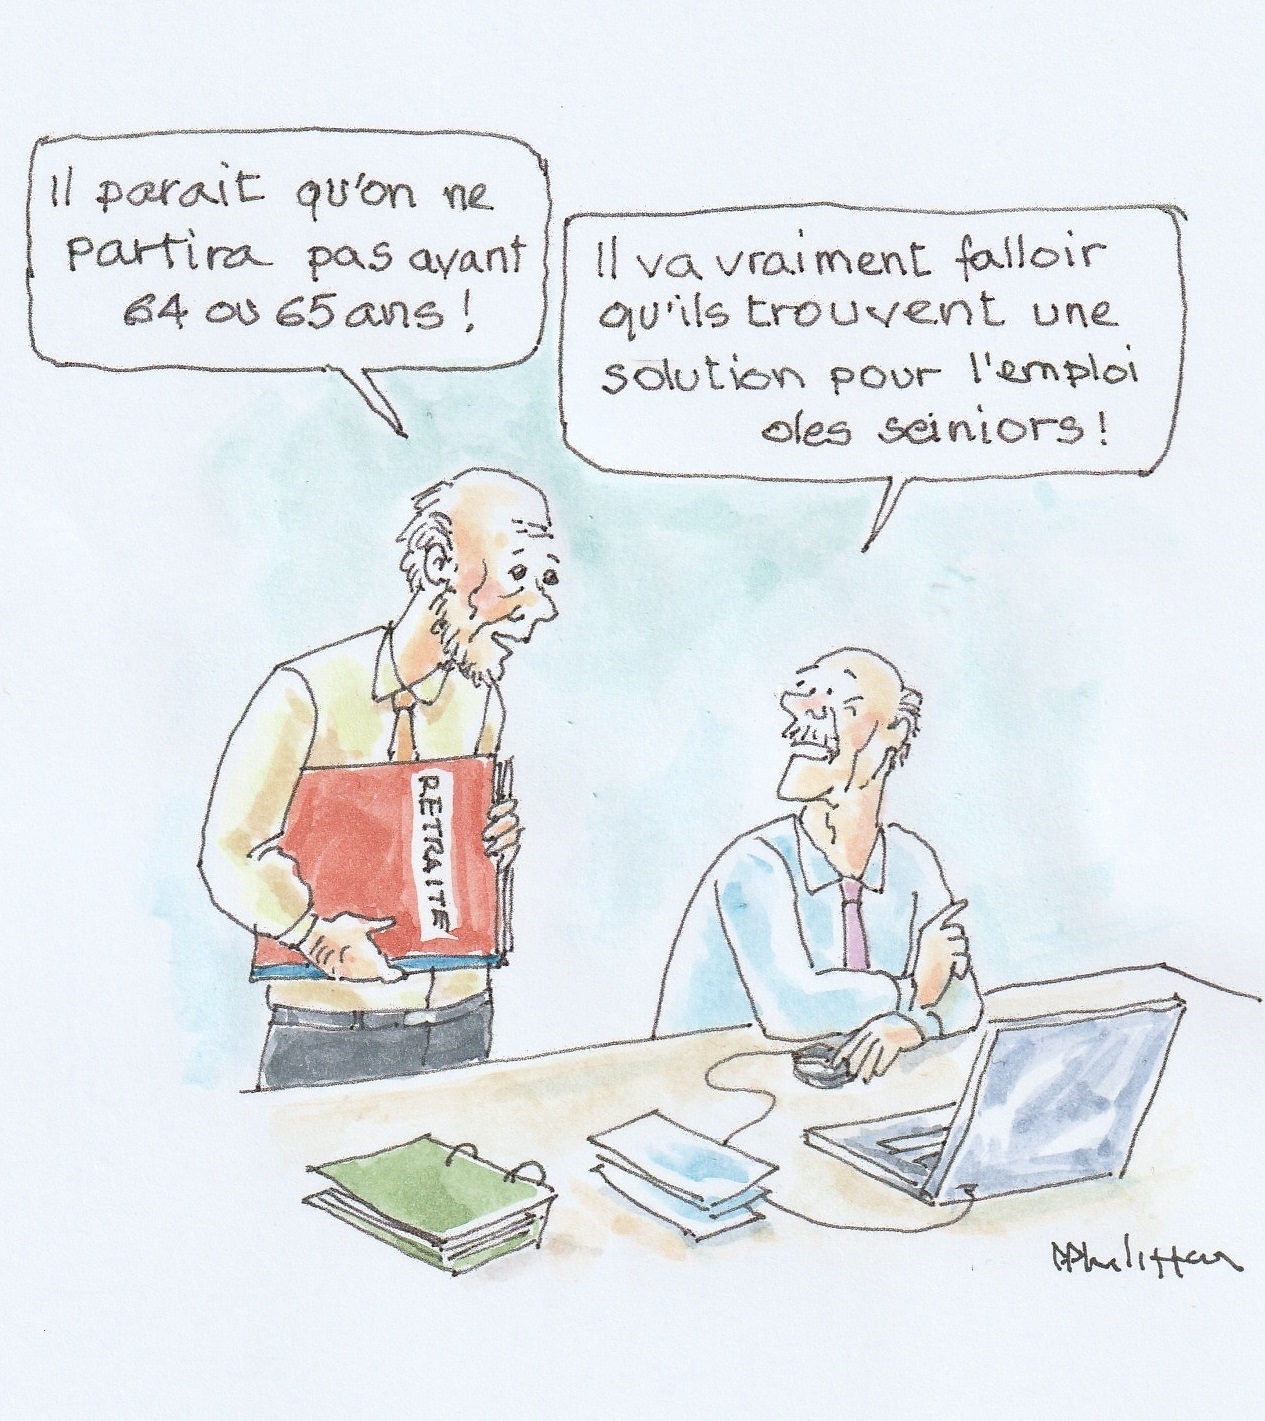 Il parait qu'on ne
partira pas avant
64 ou 65 ans !
Il va vraiment falloir
qu'ils trouvent une
solution pour l'emploi
des seiniors !
RETRAITE